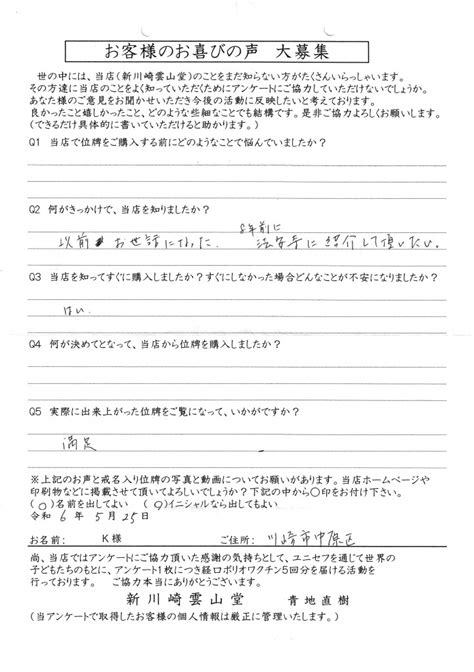 お客様のお喜びの声　大募集
世の中には、当店(新川崎雲山堂)のことをまだ知らない方がたくさんいらっしゃいます。
その方達に当店のことをよく知っていただくためにアンケートにご協力していただけないでしょうか。
あなた様のご意見をお聞かせいただき今後の活動に反映したいと考えております。
良かったこと嬉しかったこと、どのような些細なことでも結構です。是非ご協力よろしくお願いします。
(できるだけ具体的に書いていただけると助かります。)
Q1　当店で位牌をご購入する前にどのようなことで悩んでいましたか?
Q2　何がきっかけで、当店を知りましたか?
8年前に
以前 お世話になった 法安寺に紹介して頂いたい。
Q3　当店を知ってすぐに購入しましたか?すぐにしなかった場合どんなことが不安になりましたか?
はい
Q4　何が決めてとなって、当店から位牌を購入しましたか?
Q5　実際に出来上がった位牌をご覧になって、いかがですか?
満足
※上記のお声と戒名入り位牌の写真と動画についてお願いがあります。当店ホームページや
印刷物などに掲載させて頂いてよろしいでしょうか?下記の中から〇印をお付け下さい。
(　)名前を出してよい　(　)イニシャルなら出してもよい
令和 6年 5月 25日
お名前:　K様　ご住所: 川崎市中原区
尚、当店ではアンケートにご協力頂いた感謝の気持ちとして、ユニセフを通じて世界の
子どもたちのもとに、アンケート1枚につき経口ポリオワクチン5回分を届ける活動を
行っております。　ご協力本当にありがとうございます。
新川崎雲山堂　青地直樹
(当アンケートで取得したお客様の個人情報は厳正に管理いたします。)